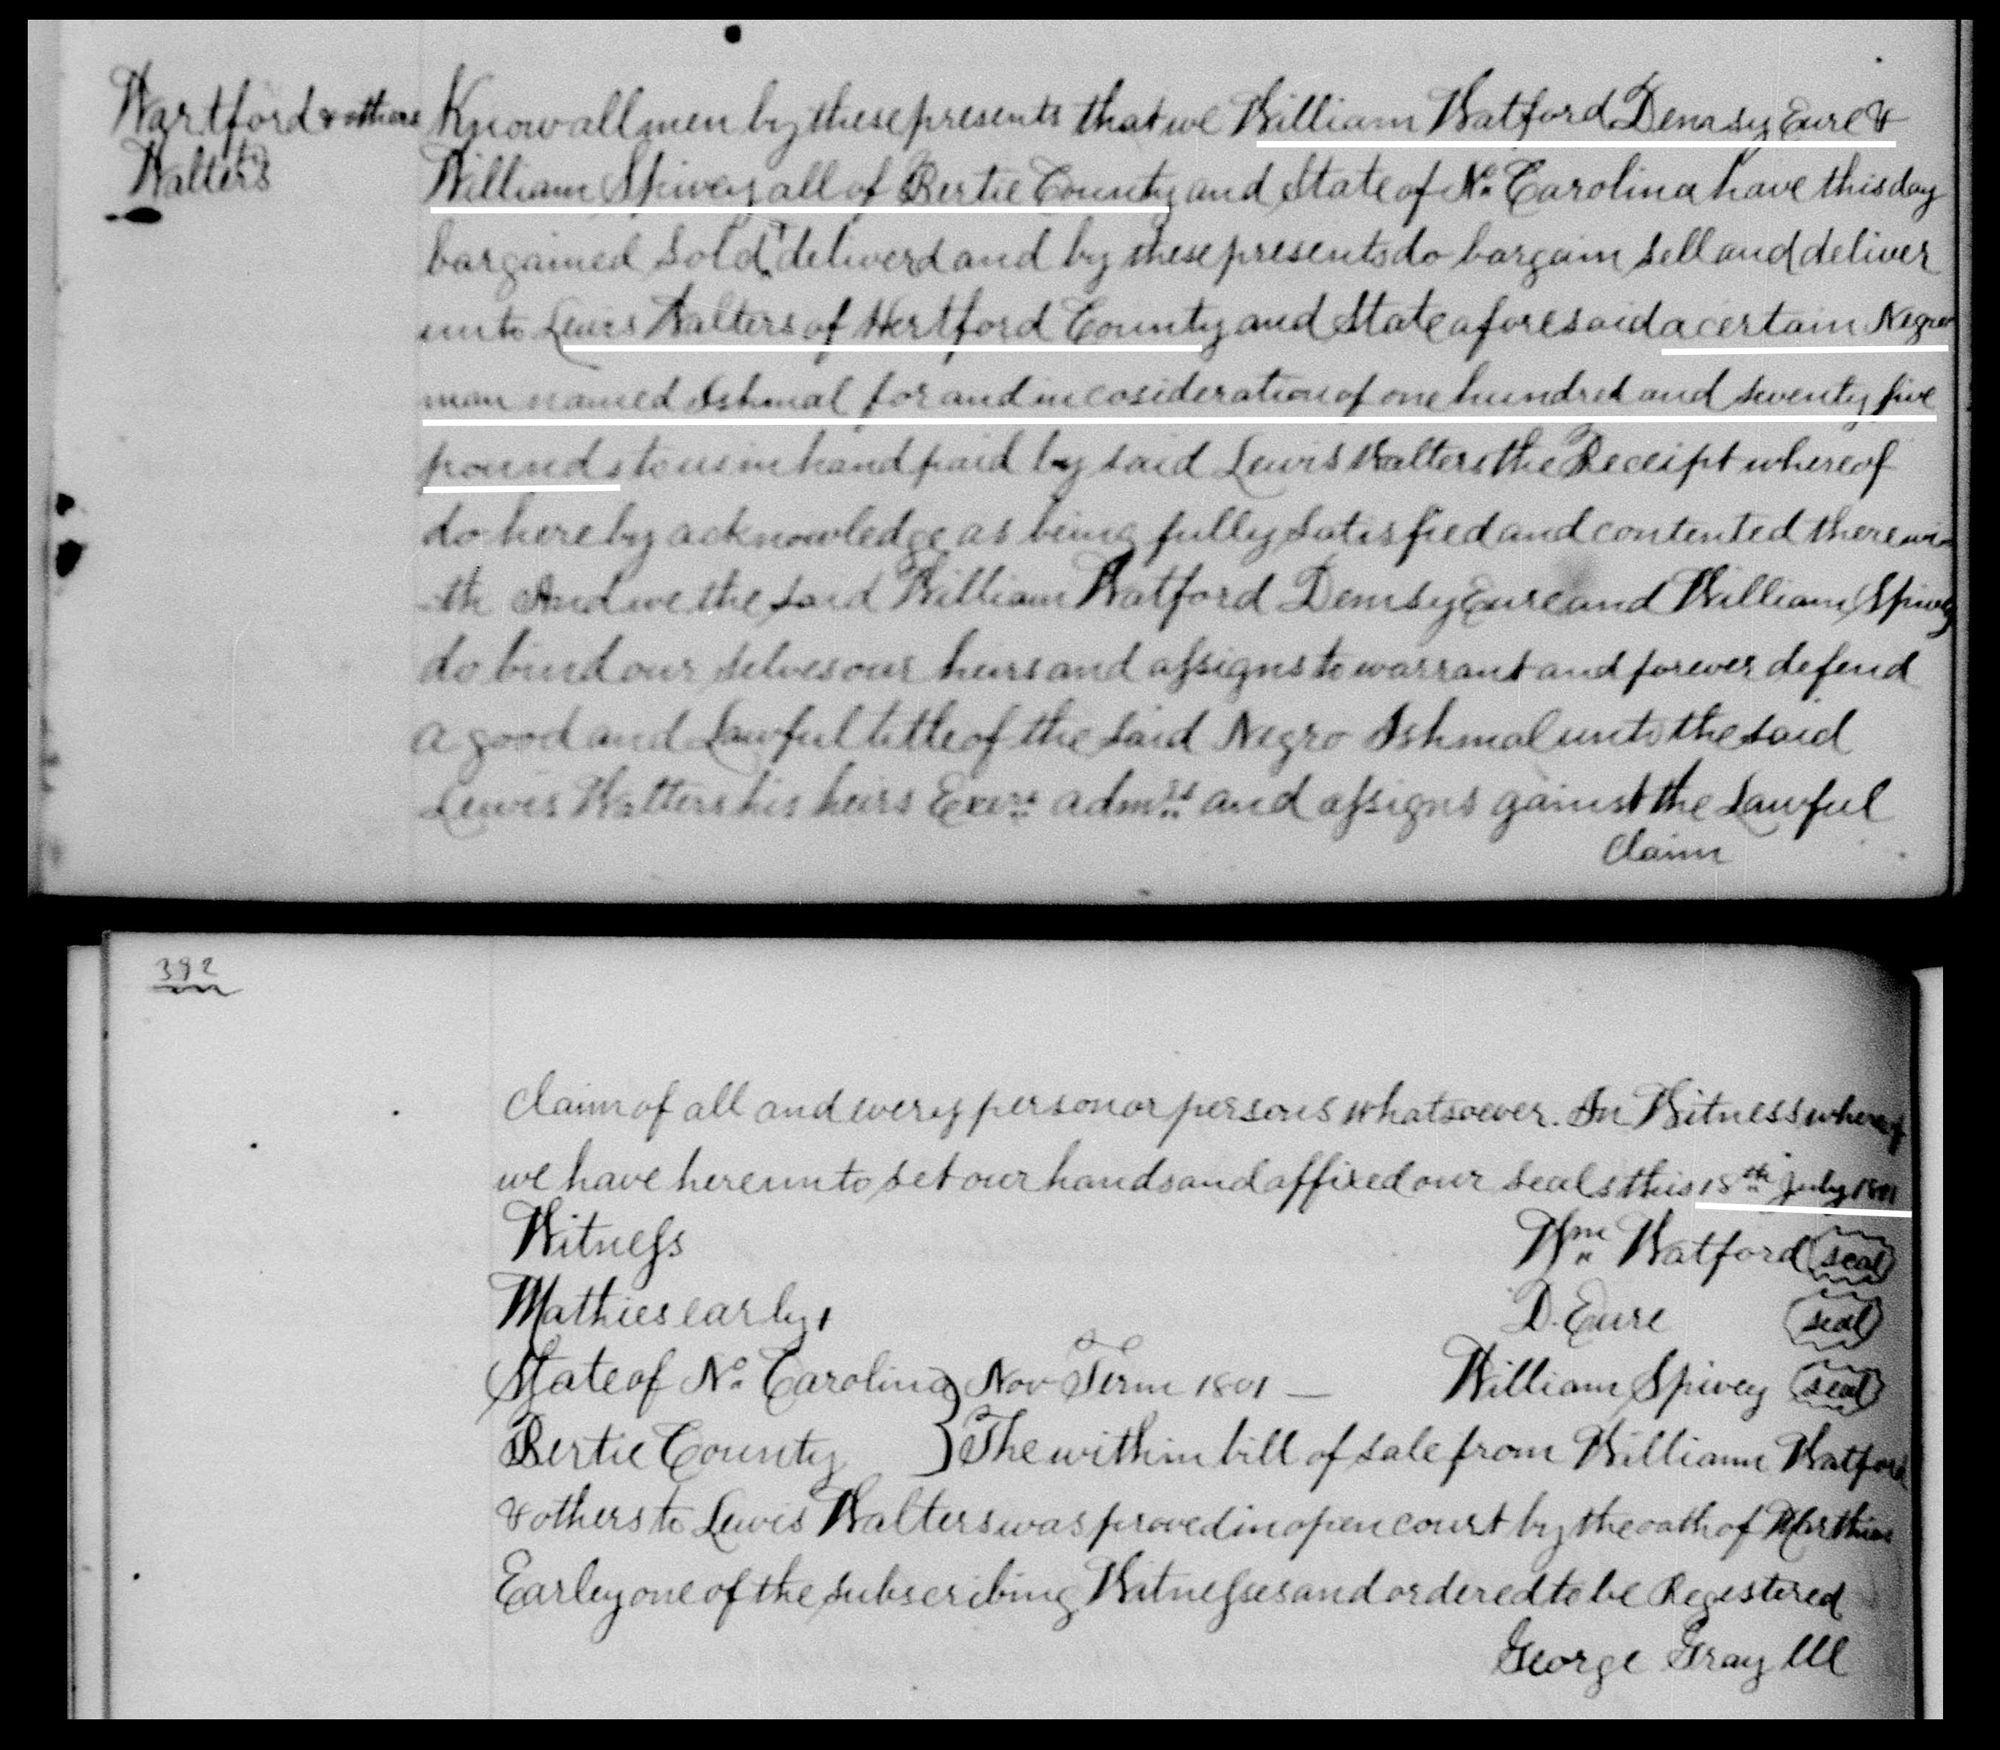 Wartford & others
to
Walters
Know all men by these presents that we William Watford Demsy Eure &
William Spivey all of Bertie County and State of No. Carolina have this day
bargained Sold deliverd and by these presents do bargain sell and deliver
unto Lewis Walters of Hertford County and State aforesaid a certain Negro
man named Ishmal for and in cosideration of one hundred and seventy five
pounds to us in hand paid by said Lewis Walters the Receipt whereof
do hereby acknowledge as being fully Satisfied and contented therewi-
-th And we the said William Watford Demsy Eure and William Spivey
do bind our selves our heirs and assigns to warrant and forever defend
a good and Lawful title of the said Negro Ishmal unto the said
Lewis Walters his heirs Exers admrs and assigns gainst the Lawful
claim
392
claim of all and every person or persons whatsoever. In Witness whereof
we have hereunto set our hands and affixed our seals this 18th July 1801
Witness Wm Watford seal
Mathies early, D. Eure seal
State of No. Carolina } Nov Term 1801 — William Spivey seal
Bertie County } The within bill of sale from William Watford
& others to Lewis Walters was proved in open court by the oath of
Earley one of the subscribing Witnesses and ordered to be Regestered
George Gray